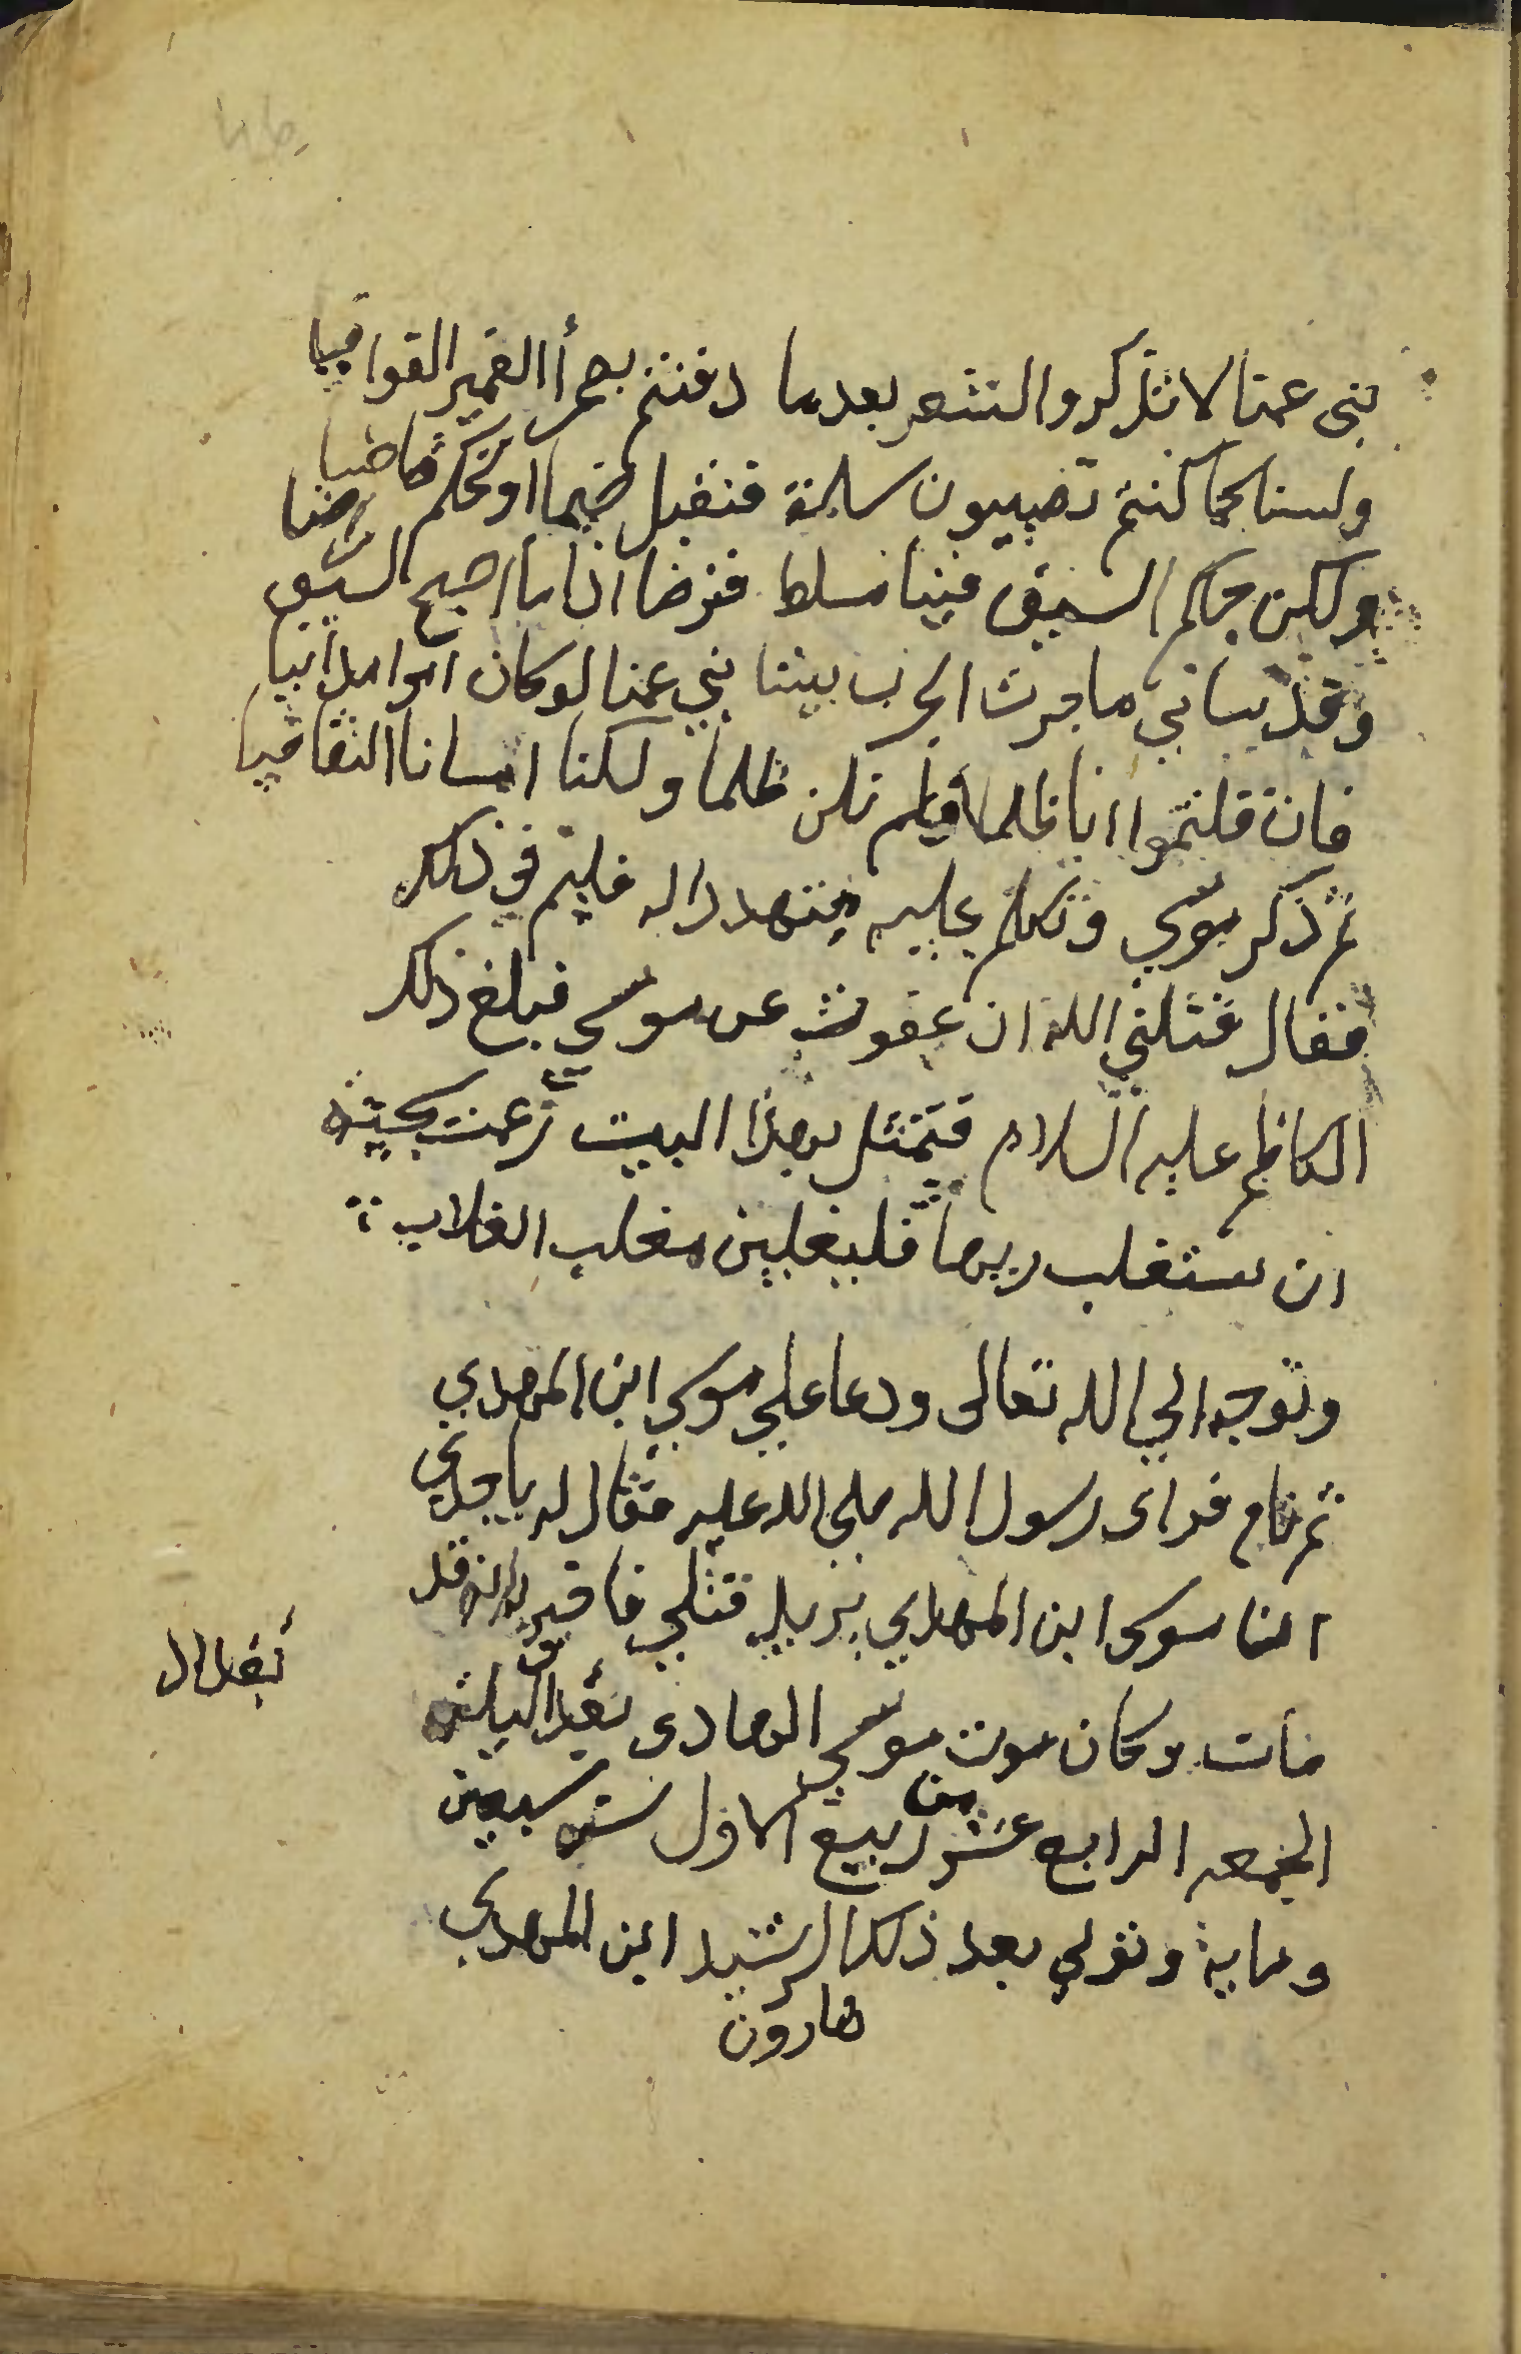 بنى عمنا لا تذكروا الشعر بعدما دفنتم بصحرأ الغمير القوافيا
ولسنا كما كنتم تصيبون سلمة فنقبل ضيما او نحكم قاضيا
ولكن حكم السيف فينا مسلط فنرضا اذا ما اصبح السيف راضنا
وقد ساني ما جرت الحرب بيننا بني عمنا لو كان امرا مدانيا
فان قلتموا انا ظلمنا فلم نكن ظلمنا ولكنا اسانا التقاضيا
ثم ذكر موسى وتكلم عليه متهددا له فليم في ذلك
فقال قتلني الله ان عفوت عن موسى فبلغ ذلك
الكاظم عليه السلام فتمثل بهذا البيت زعمت سخينه
ان ستغلب ربها فليغلبن مغلب الغلاب
وتوجه الي الله تعالى ودعا علي موسى ابن المهدي
ثم نام فراى رسول الله صلى الله عليه فقال له يا جدي
ان موسى ابن المهدي يريد قتلي فاخبره انه قد
مات وكان موت موسى الهادى بغداد ليلة
بغداد
الجمعه الرابع عشر من ربيع الاول سنه سبعين
وماية وتولي بعد ذلك الرشيد ابن المهدي
هارون